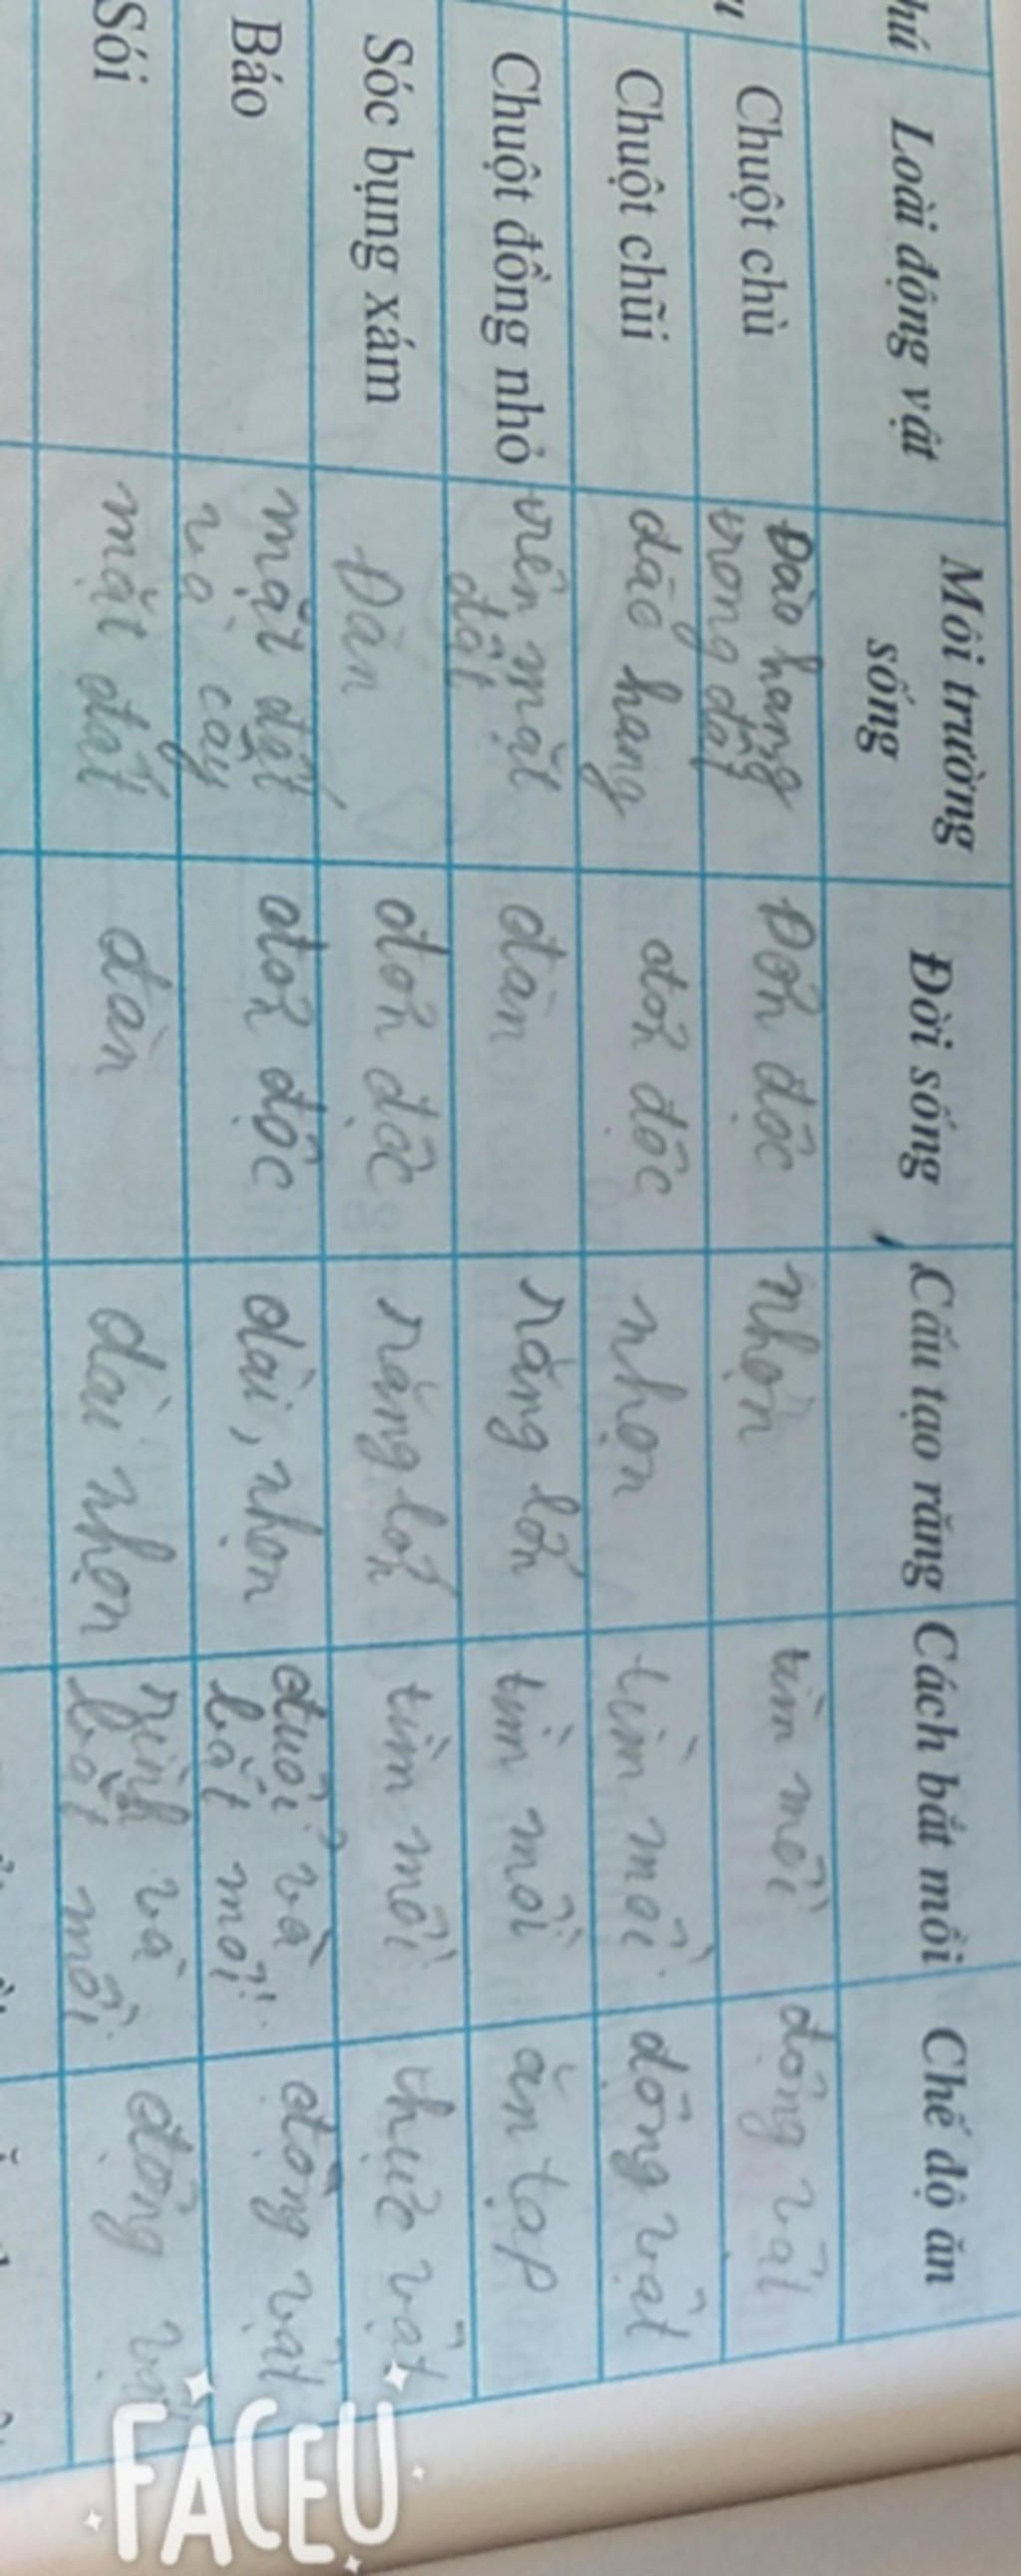 Loài động vật
Môi trường
sống
Đời sống
Cấu tạo răng
Cách bắt mồi
Chế độ ăn
Chuột chù
Đào hang
trong đất
Đơn độc
nhọn
tìm mồi
động vật
Chuột chũi
đào hang
đơn độc
nhọn
tìm mồi
động vật
Chuột đồng nhỏ
trên mặt
đất
đàn
răng lớn
tìm mồi
ăn tạp
Sóc bụng xám
Đàn
đơn độc
răng lớn
tìm mồi
thực vật
Báo
mặt đất
và cây
đơn độc
dài, nhọn
đuổi và
bắt mồi
động vật
Sói
mặt đất
đàn
dài nhọn
rình và
bắt mồi
động
FACEU